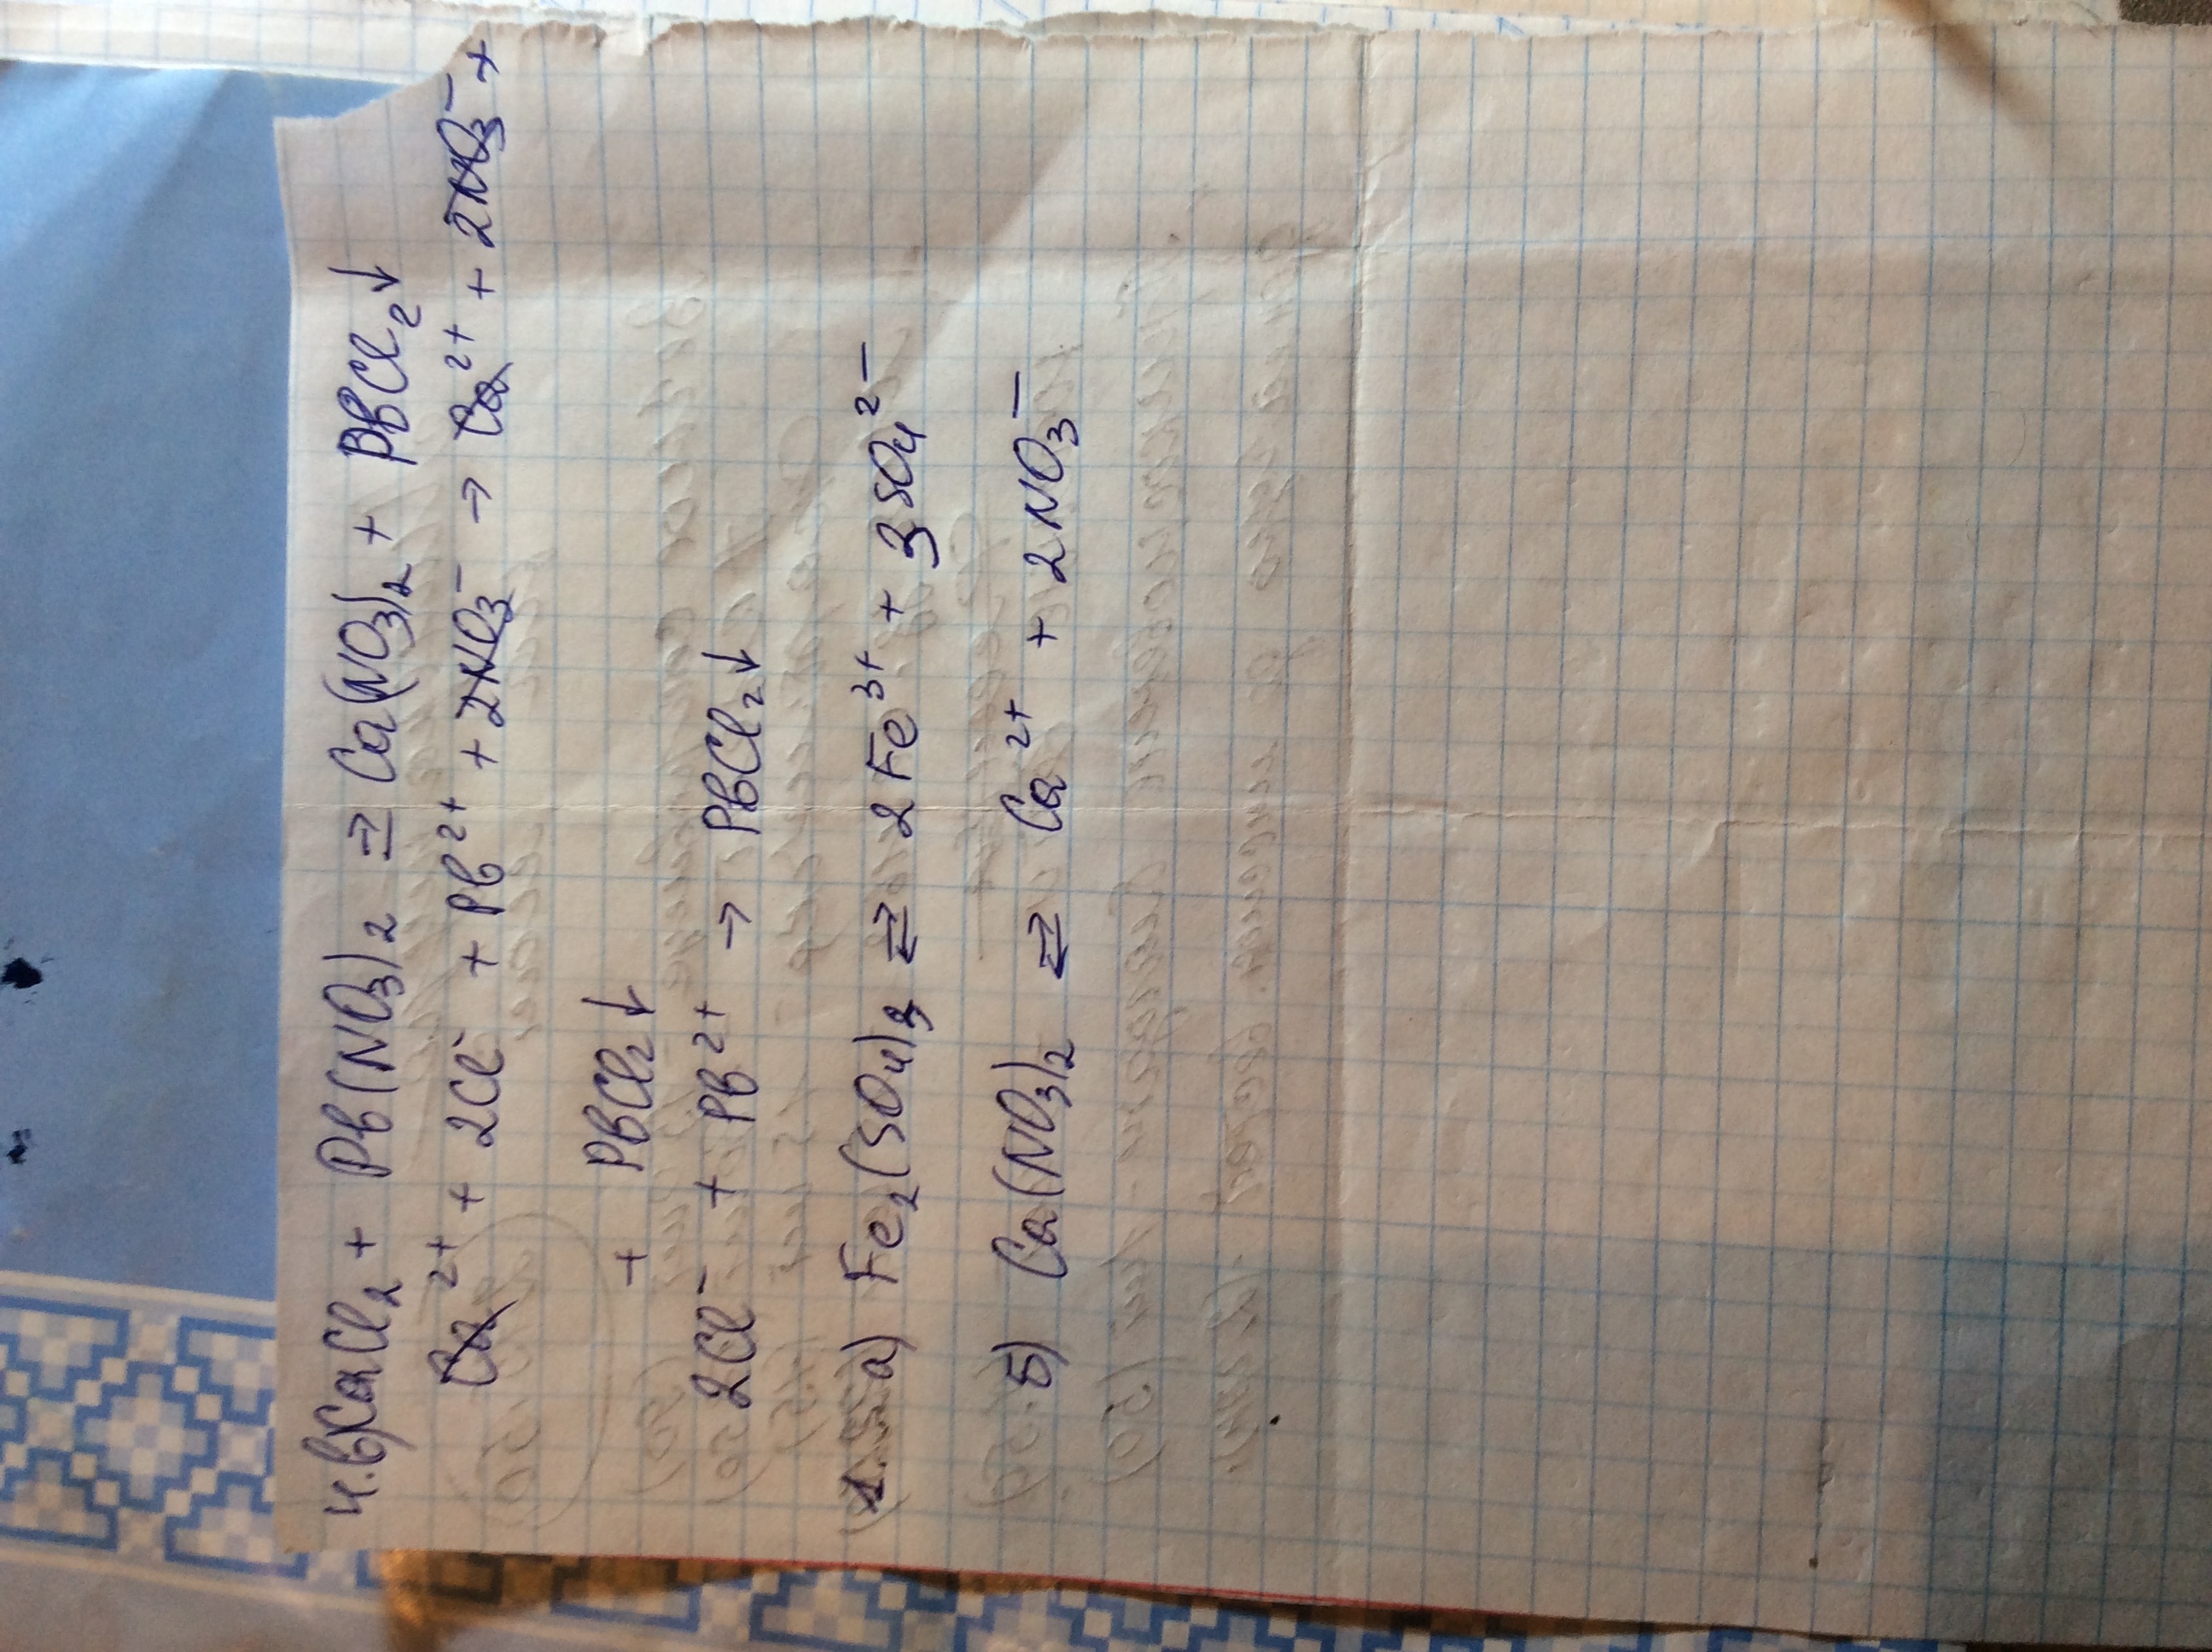 4.в) CaCl₂ + Pb(NO₃)₂ ⇒ Ca(NO₃)₂ + PbCl₂↓
Ca²⁺ + 2Cl⁻ + Pb²⁺ + 2NO₃⁻ → Ca²⁺ + 2NO₃⁻ +
+ PbCl₂↓
2Cl⁻ + Pb²⁺ → PbCl₂↓
1. а) Fe₂(SO₄)₃ ⇄ 2Fe³⁺ + 3SO₄²⁻
б) Ca(NO₃)₂ ⇄ Ca²⁺ + 2NO₃⁻